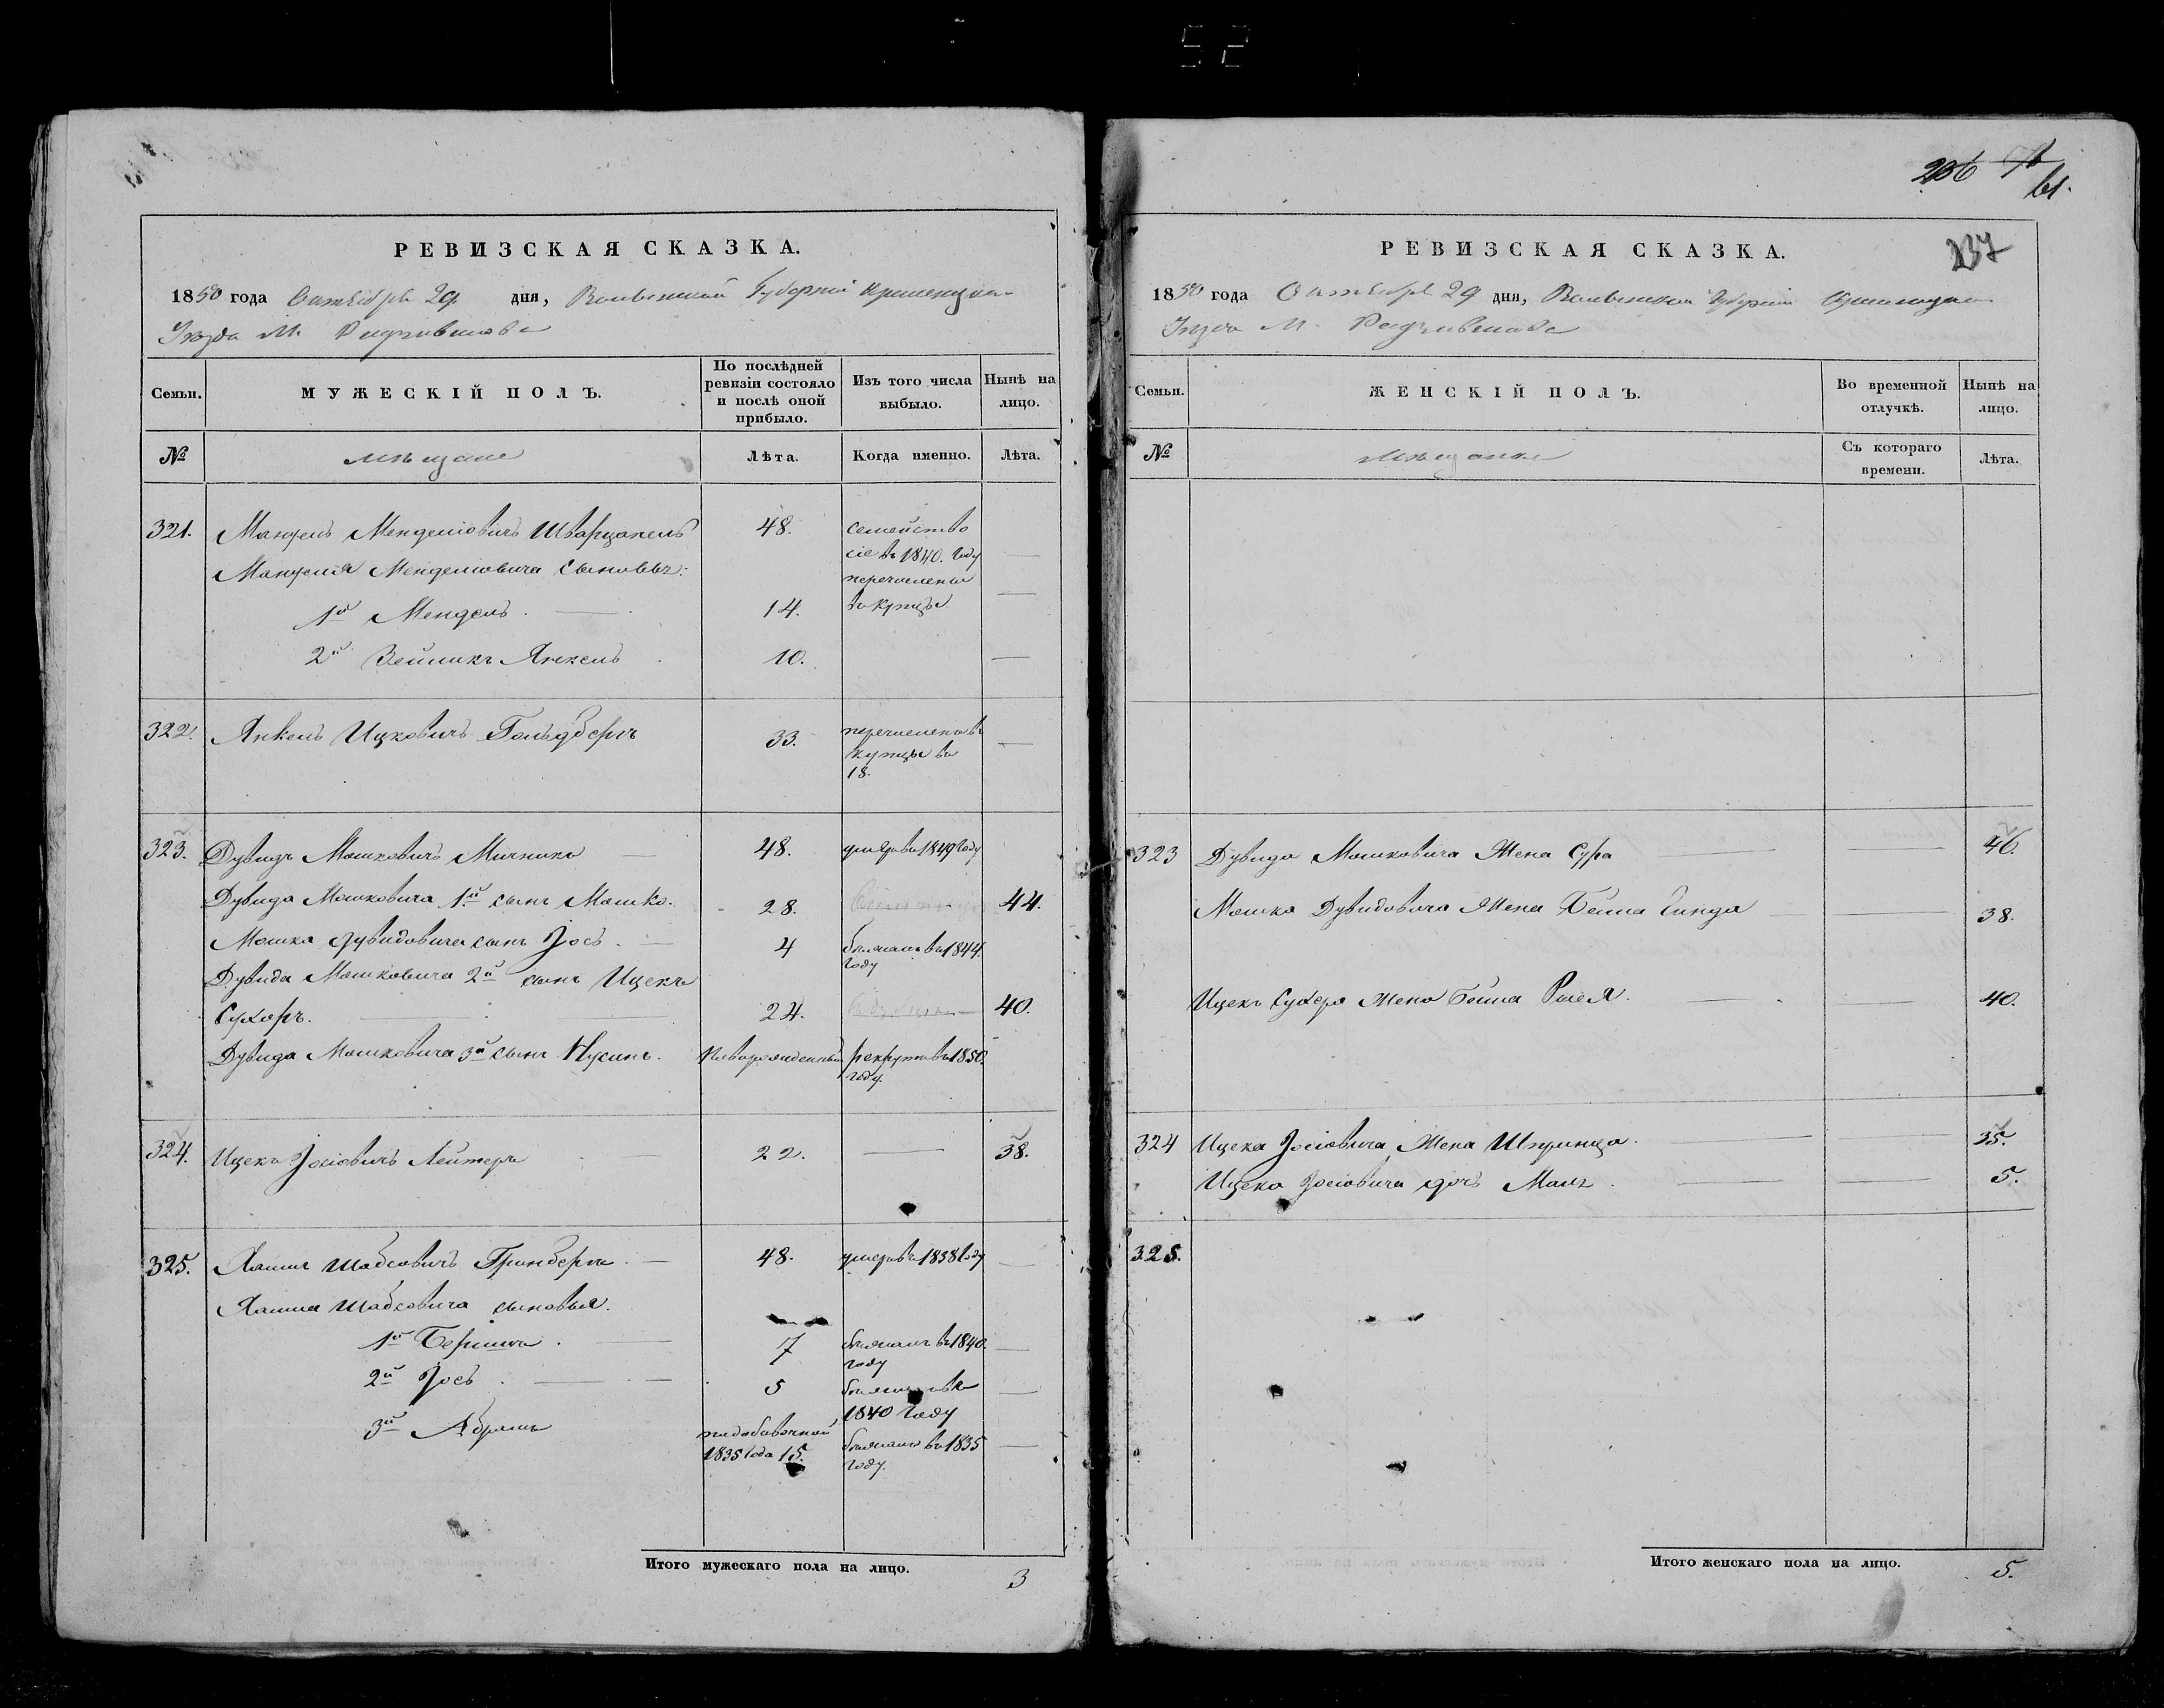 52
РЕВИЗСКАЯ СКАЗКА.
1850 года Октября 29 дня, Волынской Губерніи Кременецкаго
Уезда М. Радзивилова
Семьи.
МУЖЕСКІЙ ПОЛЪ.
По послѣдней ревизіи состояло и послѣ оной прибыло.
Изъ того числа выбыло.
Нынѣ на лицо.
№
мѣщане
Лѣта.
Когда именно.
Лѣта.
321. Менделіовичъ 48. семейство
сіе въ 1840. году
Менделіовича сыновья: перечислены
1й Мендель. 14. въ купцы
2й Зейликъ Янкель 10.
322. Янкель Ицковичъ Гольдбергъ 33. перечисленъ въ
купцы въ
18.
323. Дувидъ Мошковичъ 48. умеръ въ 1849 году
Дувида Мошковича 1й сынъ Мошко. 28. 44.
Мошка Дувидовича сынъ Іось. 4 бежалъ въ 1844.
году
Дувида Мошковича 2й сынъ Ицекъ
Сухоръ. 24. 40.
Дувида Мошковича 3й сынъ Нусинъ. новорожденный рекрутъ въ 1850.
году.
324. Ицекъ Іосіовичъ 22. 38.
325. Хаимъ Шабсовичъ Гринбергъ. 48. умеръ въ 1838 году
Хаима Шабсовича сыновья.
1й 7 бежалъ въ 1840.
году
2й Іось. 5 бежалъ въ
1840 году
3й Абрамъ по добавочной бежалъ въ 1835
1835 года 15. году.
Итого мужескаго пола на лицо. 3
206
61.
237
РЕВИЗСКАЯ СКАЗКА.
1850 года Октября 29 дня, Волынской Губерніи Кременецкаго
Уезда М. Радзивилова
Семьи.
ЖЕНСКІЙ ПОЛЪ.
Во временной отлучкѣ.
Нынѣ на лицо.
№
мѣщанки
Съ котораго времени.
Лѣта.
323 Дувида Мошковича Жена Сура 46.
Мошка Дувидовича Жена Бейла Гинда 38.
Ицекъ Сухера Жена Бейла 40.
324 Ицека Іосіовича Жена Шпринца 35.
Ицека Іосіовича дочь 5.
325.
Итого женскаго пола на лицо. 5.